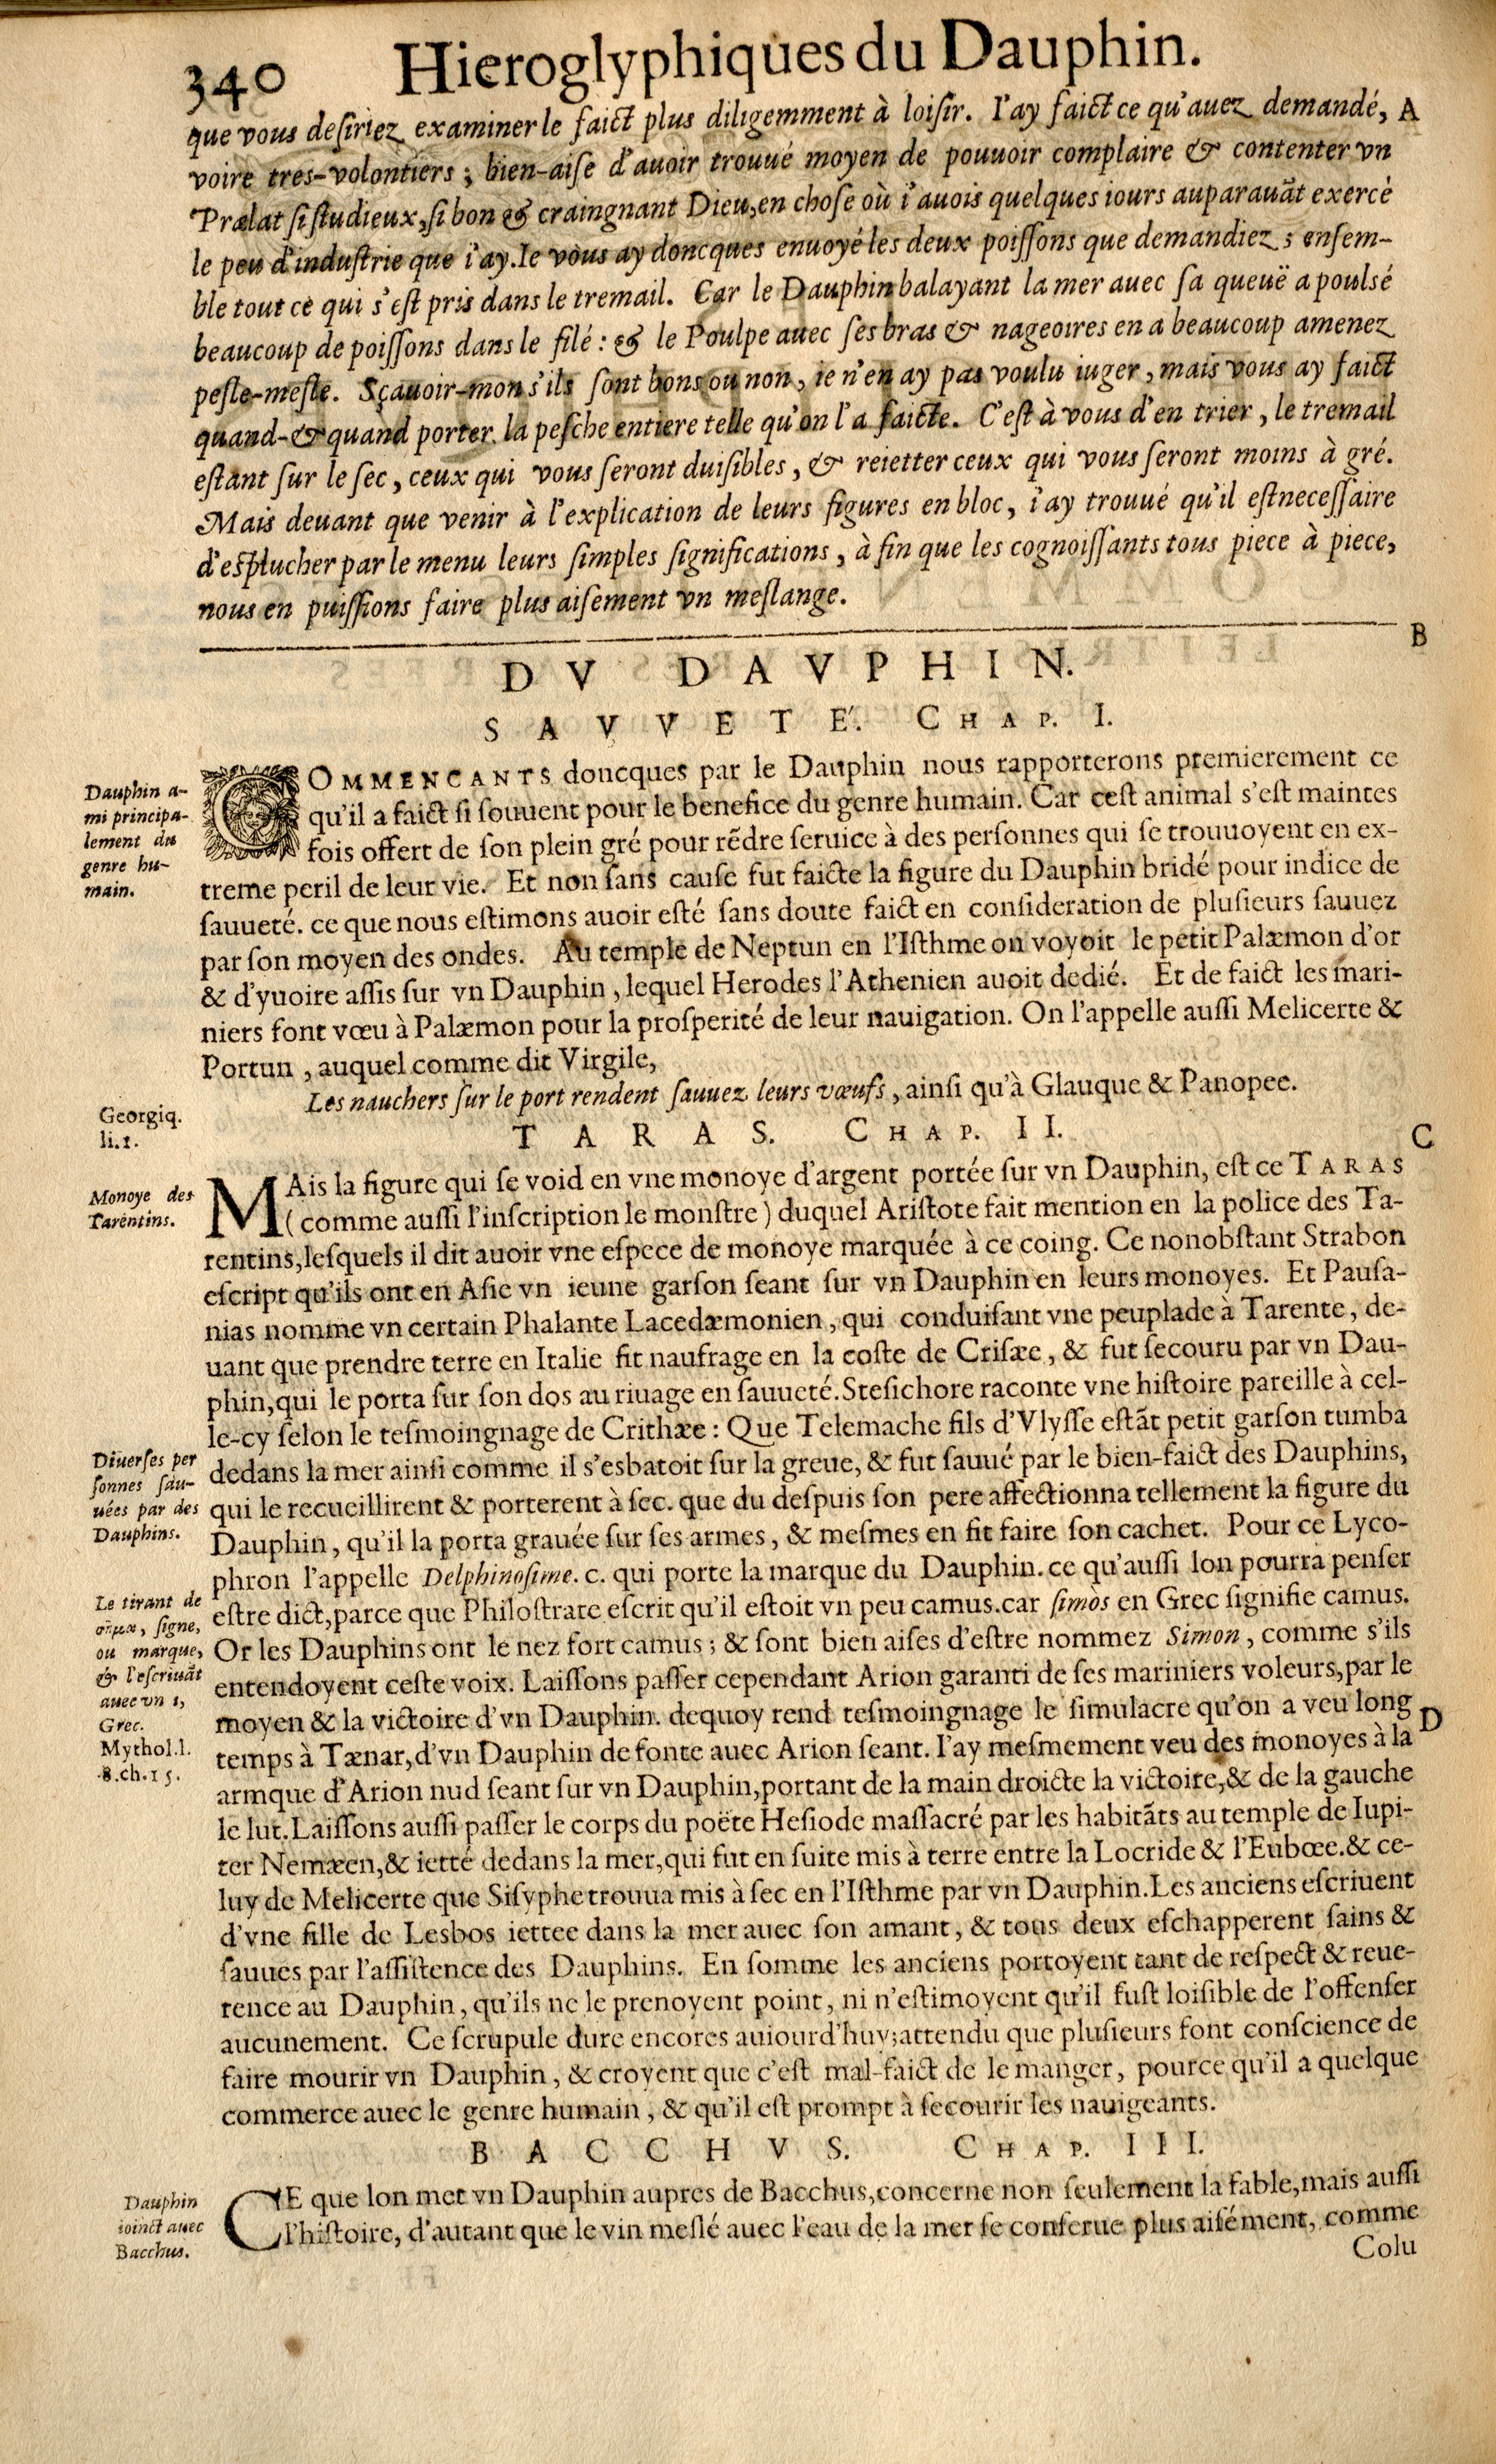 340 Hieroglyphiques du Dauphin.
que vous desiriez examiner le faict plus diligemment à loisir. I'ay faict ce qu'auez demandé, A
voire tres-volontiers ; bien-aise d'auoir trouué moyen de pouuoir complaire & contenter vn
Prælat si studieux, si bon & craingnant Dieu, en chose où i'auois quelques iours auparauãt exercé
le peu d'industrie que i'ay. Ie vous ay doncques enuoyé les deux poissons que demandiez ; ensem-
ble tout ce qui s'est pris dans le tremail. Car le Dauphin balayant la mer auec sa queuë a poulsé
beaucoup de poissons dans le filé : & le Poulpe auec ses bras & nageoires en a beaucoup amenez
pesle-mesle. Sçauoir-mon s'ils sont bons ou non, ie n'en ay pas voulu iuger, mais vous ay faict
quand-& quand porter la pesche entiere telle qu'on l'a faicte. C'est à vous d'en trier, le tremail
estant sur le sec, ceux qui vous seront duisibles, & reietter ceux qui vous seront moins à gré.
Mais deuant que venir à l'explication de leurs figures en bloc, i'ay trouué qu'il est necessaire
d'esplucher par le menu leurs simples significations, à fin que les cognoissants tous piece à piece,
nous en puissions faire plus aisement vn meslange.
B
DV DAVPHIN.
SAVVETÉ. CHAP. I.
Dauphin a-
mi principa-
lement du
genre hu-
main.
COMMENCANTS doncques par le Dauphin nous rapporterons premierement ce
qu'il a faict si souuent pour le benefice du genre humain. Car cest animal s'est maintes
fois offert de son plein gré pour rẽdre seruice à des personnes qui se trouuoyent en ex-
treme peril de leur vie. Et non sans cause fut faicte la figure du Dauphin bridé pour indice de
sauueté. ce que nous estimons auoir esté sans doute faict en consideration de plusieurs sauuez
par son moyen des ondes. Au temple de Neptun en l'Isthme on voyoit le petit Palæmon d'or
& d'yuoire assis sur vn Dauphin, lequel Herodes l'Athenien auoit dedié. Et de faict les mari-
niers font vœu à Palæmon pour la prosperité de leur nauigation. On l'appelle aussi Melicerte &
Portun, auquel comme dit Virgile,
Les nauchers sur le port rendent sauuez leurs vœufs, ainsi qu'à Glauque & Panopee.
Georgiq.
li.1.
TARAS. CHAP. II.
C
Monoye des
Tarentins.
MAis la figure qui se void en vne monoye d'argent portée sur vn Dauphin, est ce TARAS
( comme aussi l'inscription le monstre ) duquel Aristote fait mention en la police des Ta-
rentins, lesquels il dit auoir vne espece de monoye marquée à ce coing. Ce nonobstant Strabon
escript qu'ils ont en Asie vn ieune garson seant sur vn Dauphin en leurs monoyes. Et Pausa-
nias nomme vn certain Phalante Lacedæmonien, qui conduisant vne peuplade à Tarente, de-
uant que prendre terre en Italie fit naufrage en la coste de Crisæe, & fut secouru par vn Dau-
phin, qui le porta sur son dos au riuage en sauueté. Stesichore raconte vne histoire pareille à cel-
le-cy selon le tesmoingnage de Crithæe : Que Telemache fils d'Vlysse estãt petit garson tumba
dedans la mer ainsi comme il s'esbatoit sur la greue, & fut sauué par le bien-faict des Dauphins,
qui le recueillirent & porterent à sec. que du despuis son pere affectionna tellement la figure du
Dauphin, qu'il la porta grauée sur ses armes, & mesmes en fit faire son cachet. Pour ce Lyco-
phron l'appelle Delphinosime. c. qui porte la marque du Dauphin. ce qu'aussi lon pourra penser
estre dict, parce que Philostrate escrit qu'il estoit vn peu camus. car simòs en Grec signifie camus.
Or les Dauphins ont le nez fort camus ; & sont bien aises d'estre nommez Simon, comme s'ils
entendoyent ceste voix. Laissons passer cependant Arion garanti de ses mariniers voleurs, par le
moyen & la victoire d'vn Dauphin. dequoy rend tesmoingnage le simulacre qu'on a veu long
temps à Tænar, d'vn Dauphin de fonte auec Arion seant. I'ay mesmement veu des monoyes à la
armque d'Arion nud seant sur vn Dauphin, portant de la main droicte la victoire, & de la gauche
le lut. Laissons aussi passer le corps du poëte Hesiode massacré par les habitãts au temple de Iupi-
ter Nemæen, & ietté dedans la mer, qui fut en suite mis à terre entre la Locride & l'Eubœe. & ce-
luy de Melicerte que Sisyphe trouua mis à sec en l'Isthme par vn Dauphin. Les anciens escriuent
d'vne fille de Lesbos iettee dans la mer auec son amant, & tous deux eschapperent sains &
sauues par l'assistence des Dauphins. En somme les anciens portoyent tant de respect & reue-
rence au Dauphin, qu'ils ne le prenoyent point, ni n'estimoyent qu'il fust loisible de l'offenser
aucunement. Ce scrupule dure encores auiourd'huy; attendu que plusieurs font conscience de
faire mourir vn Dauphin, & croyent que c'est mal-faict de le manger, pource qu'il a quelque
commerce auec le genre humain, & qu'il est prompt à secourir les nauigeants.
Diuerses per
sonnes sau-
uées par des
Dauphins.
Le tirant de
σῆμα, signe,
ou marque,
& l'escriuãt
auec vn ι,
Grec.
Mythol.l.
8.ch.15.
D
BACCHVS. CHAP. III.
Dauphin
ioinct auec
Bacchus.
CE que lon met vn Dauphin aupres de Bacchus, concerne non seulement la fable, mais aussi
l'histoire, d'autant que le vin meslé auec l'eau de la mer se conserue plus aisément, comme
Colu